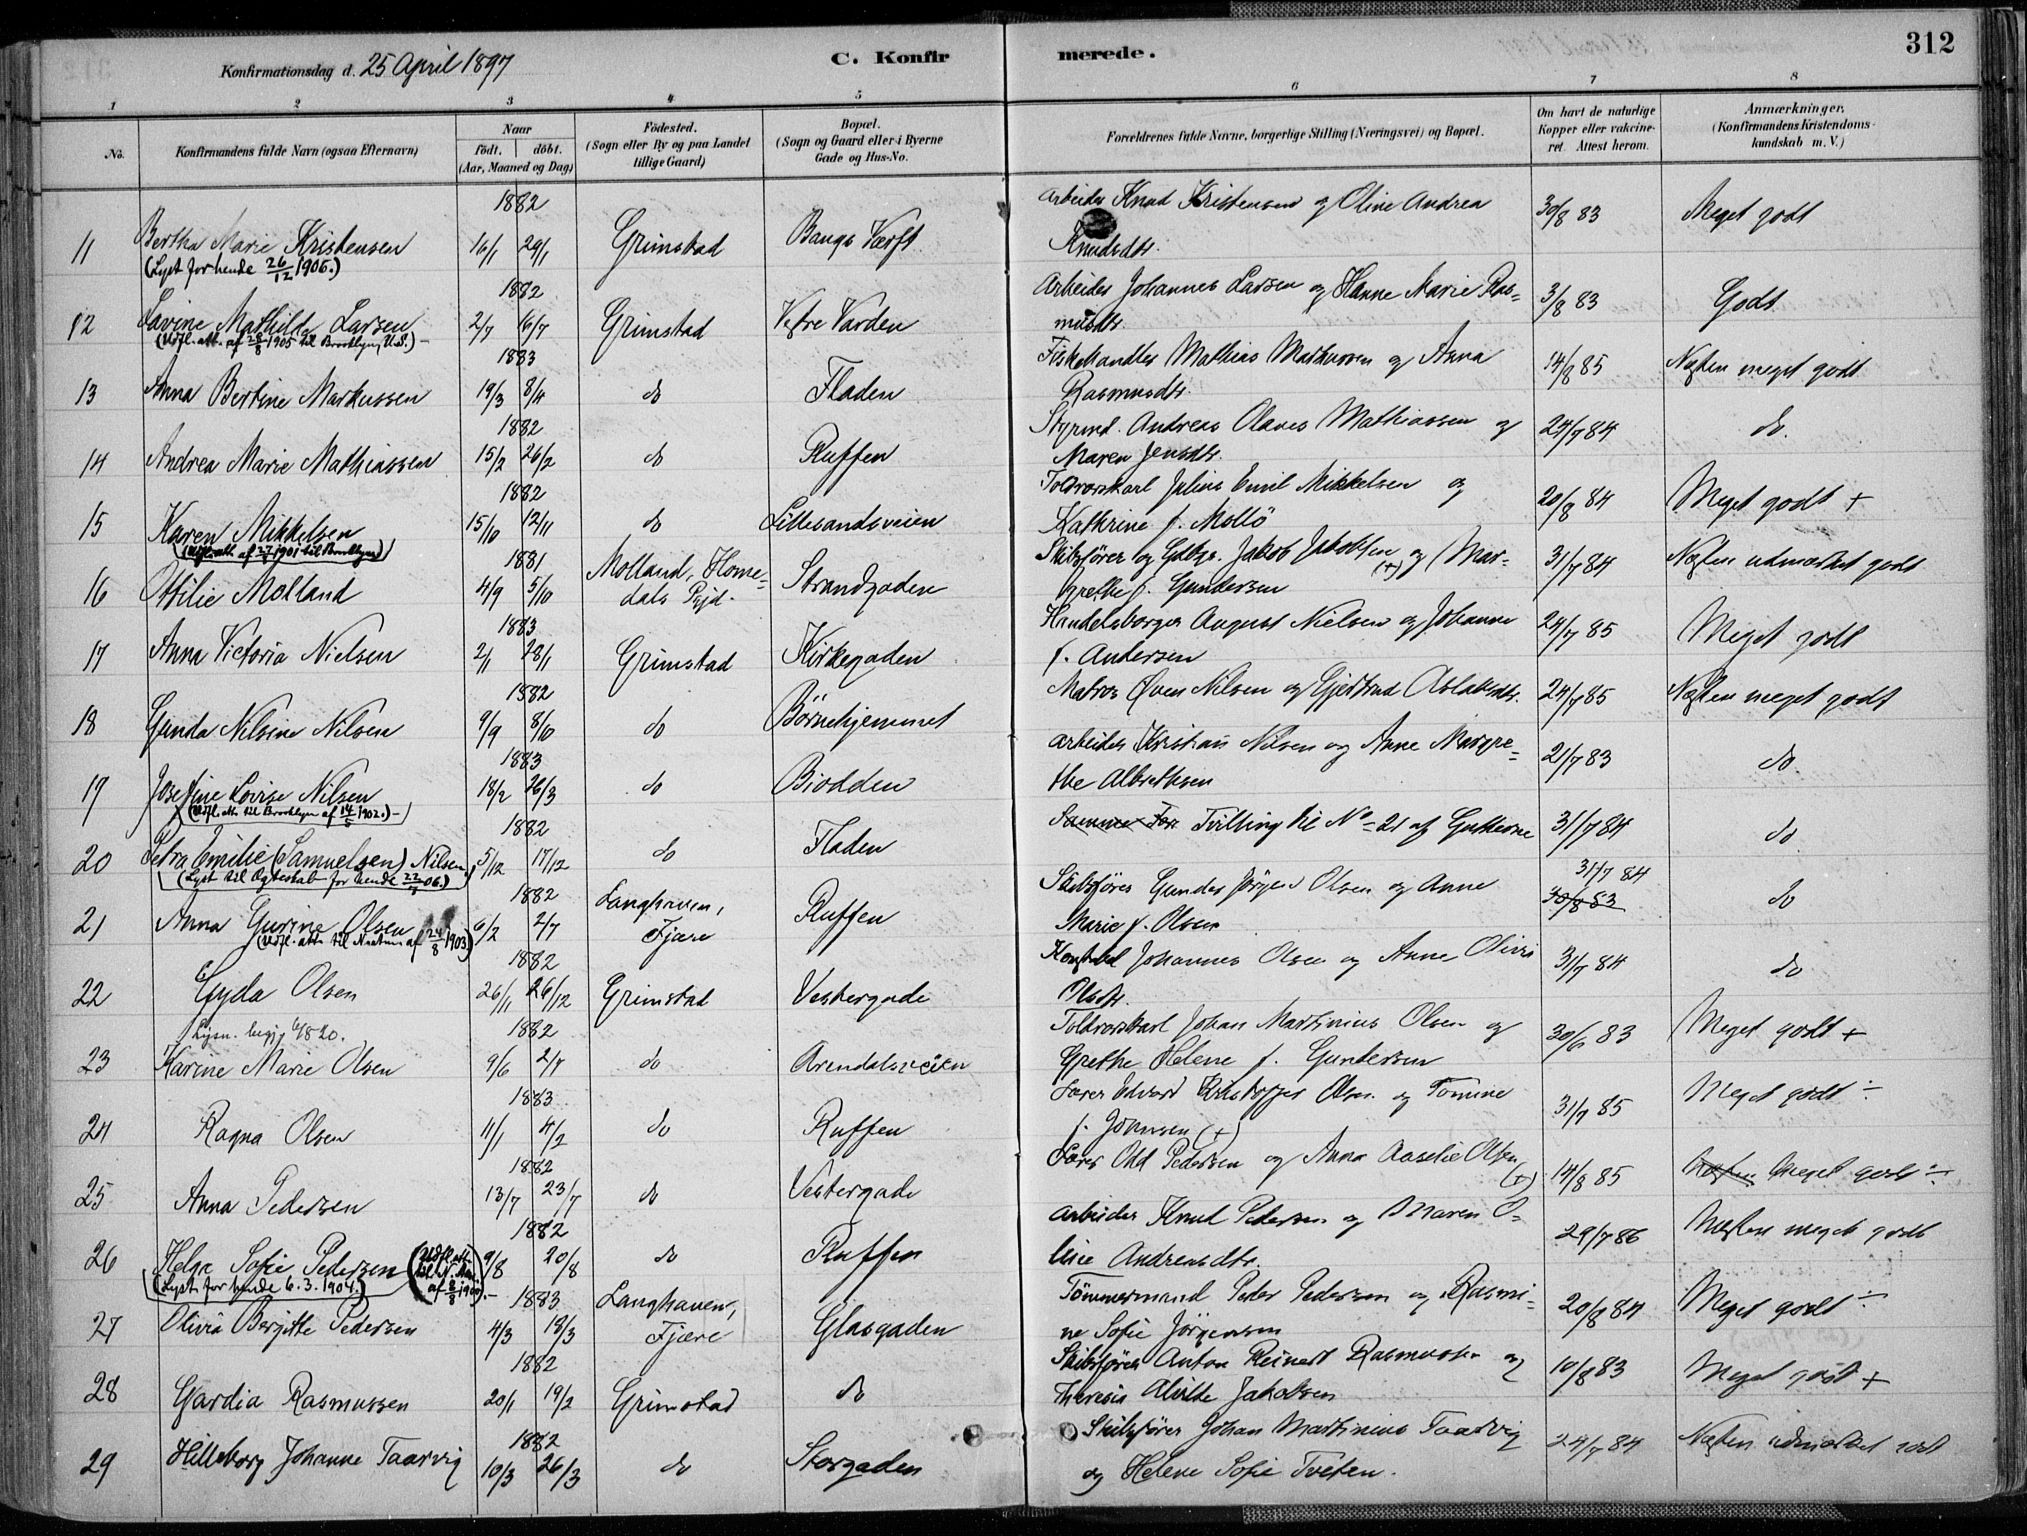 312
Konfirmationsdag d. 25 April 1897
C. Konfirmerede.
1 2 3 4 5 6 7 8
No.
Konfirmandens fulde Navn (ogsaa Efternavn)
Naar
født. døbt.
(Aar, Maaned og Dag)
Födested.
(Sogn eller By og paa Landet
tillige Gaard)
Bopæl.
(Sogn og Gaard eller i Byerne
Gade og Hus-No.
Forældrenes fulde Navne, borgerlige Stilling (Næringsvei) og Bopæl.
Om havt de naturlige
Kopper eller vakcine-
ret. Attest herom.
Anmærkninger.
(Konfirmandens Kristendoms-
kundskab m. V.)
1882
Arbeider Knud Kristensen og Oline Andrea
11 Bertha Marie Kristensen 16/1 29/1 Grimstad Bangs Værft Knudsdtr. 30/8 83 Meget godt
(Lyst for hende 26/12 1906.)
1882
Arbeider Johannes Larsen og Hanne Marie Ras-
12 Lavine Mathilde Larsen 2/7 16/7 Grimstad Vestre Varden musdtr 3/8 83 Godt
(Udfl. att. af 28/8 1905 til Brooklyn, U.S.)
1883
Fiskehandler Mathias Markussen og Anna
13 Anna Bertine Markussen 19/3 8/4 do Fladen Rasmusdtr. 14/8 85 Næsten meget godt
1882
Styrmd. Andreas Olaves Mathiassen og
14 Andrea Marie Mathiassen 15/2 26/2 do Ruffen Maren Jensdtr. 24/7 84 do.
1882
Toldrorskarl Julius Emil Mikkelsen og
15 Karen Mikkelsen 15/10 12/11 do Lillesandsveien Kathrine f. Mollö 20/8 84 Meget godt +
(Udfl. att. af 27/ 1901 til Brooklyn)
1881
Skibsfører og Gdbgr. Jakob Jakobsen (+) og Mar-
16 Ottilie Molland 4/9 5/10 Molland, Home-
dals Pgjd. Strandgaden grethe f. Gundersen 31/7 84 Næsten udmærket godt
1883
Handelsborger August Nielsen og Johanne
17 Anna Victoria Nielsen 2/1 28/1 Grimstad Kirkegaden f. Andersen 24/7 85 Meget godt
1882
18 Gunda Nilsine Nilsen 9/9 8/10 do Börnehjemmet Matros Öven Nilsen og Gjertrud Aslaksdtr. 24/7 85 Næsten meget godt
1883
Arbeider Kristian Nilsen og Anne Margre-
19 Josefine Lovise Nilsen 18/2 26/3 do Biodden the Albretsen 21/7 83 do
(Udfl. att. til Brooklyn af 14/5 1902.)
1882
20 Petra Emilie (Samuelsen) Nilsen 5/12 17/12 do Fladen Tvilling til No 21 af Gutterne 31/7 84 do.
(Lyst til Ægteskab for hende 22/ 06.)
1882
Skibsfører Gunder Jörgen Olsen og Anne
21 Anna Gurine Olsen 6/2 2/7 Langhaven,
Fjære Ruffen Marie f. Olsen 31/7 84 30/8 83 do
(Udfl. att. til af 24/8 1903)
1882
Johannes Olsen og Anne Olivi
22 Gyda Olsen 26/11 26/12 Grimstad Vestergade Olsdtr. 31/7 84 do
Lysn. begj. 6/8 20.
1882
Toldrorskarl Johan Martinius Olsen og
23 Karine Marie Olsen 9/6 2/7 do Arendalsveien Grethe Helene f. Gundersen 30/6 83 Meget godt +
1883
Edvard Kristoffer Olsen og Tomine
24 Ragna Olsen 11/1 4/2 do Ruffen f. Johnsen (+) 31/7 85 Meget godt ÷
1882
Odd Pedersen og Anna Aaselie Olsen (+)
25 Anna Pedersen 13/7 23/7 do Vestergade 14/8 85 Næsten Meget godt ÷
1882
Arbeider Knud Pedersen og Maren O-
26 Helga Sofie Pedersen 9/8 20/8 do Ruffen line Andreasdtr. 29/7 86 Næsten meget godt
(Lyst for hende 6.3.1904.)
1883
Tømmermand Peder Pedersen og Rasmi-
27 Olivia Bergitte Pedersen 4/3 18/3 Langhaven,
Fjære Glasgaden ne Sofie Jörgensen 20/8 84 Meget godt ÷
1882
Skibsfører Anton Reinert Rasmussen og
28 Gardia Rasmussen 20/1 19/2 Grimstad do Theresia Alvilde Jakobsen 10/8 83 Meget godt +
1882
Skibsfører Johan Martinius Taarvig
29 Hilleborg Johanne Taarvig 10/3 26/3 do Storgaden og Helene Sofie Tveten. 24/7 84 Næsten udmærket godt